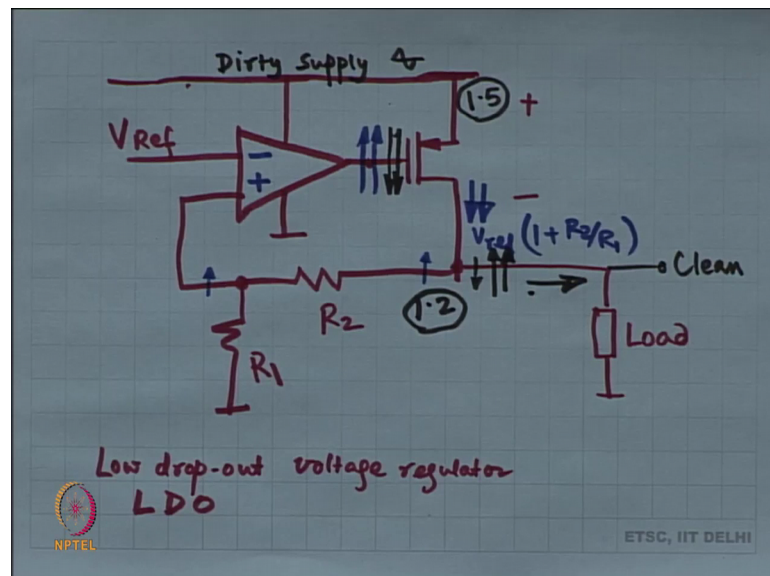 Dirty Supply
1.5 +
VRef
−
+
−
Vref (1 + R2/R1)
Clean
R2
1.2
Load
R1
Low drop-out voltage regulator
LDO
NPTEL
ETSC, IIT DELHI